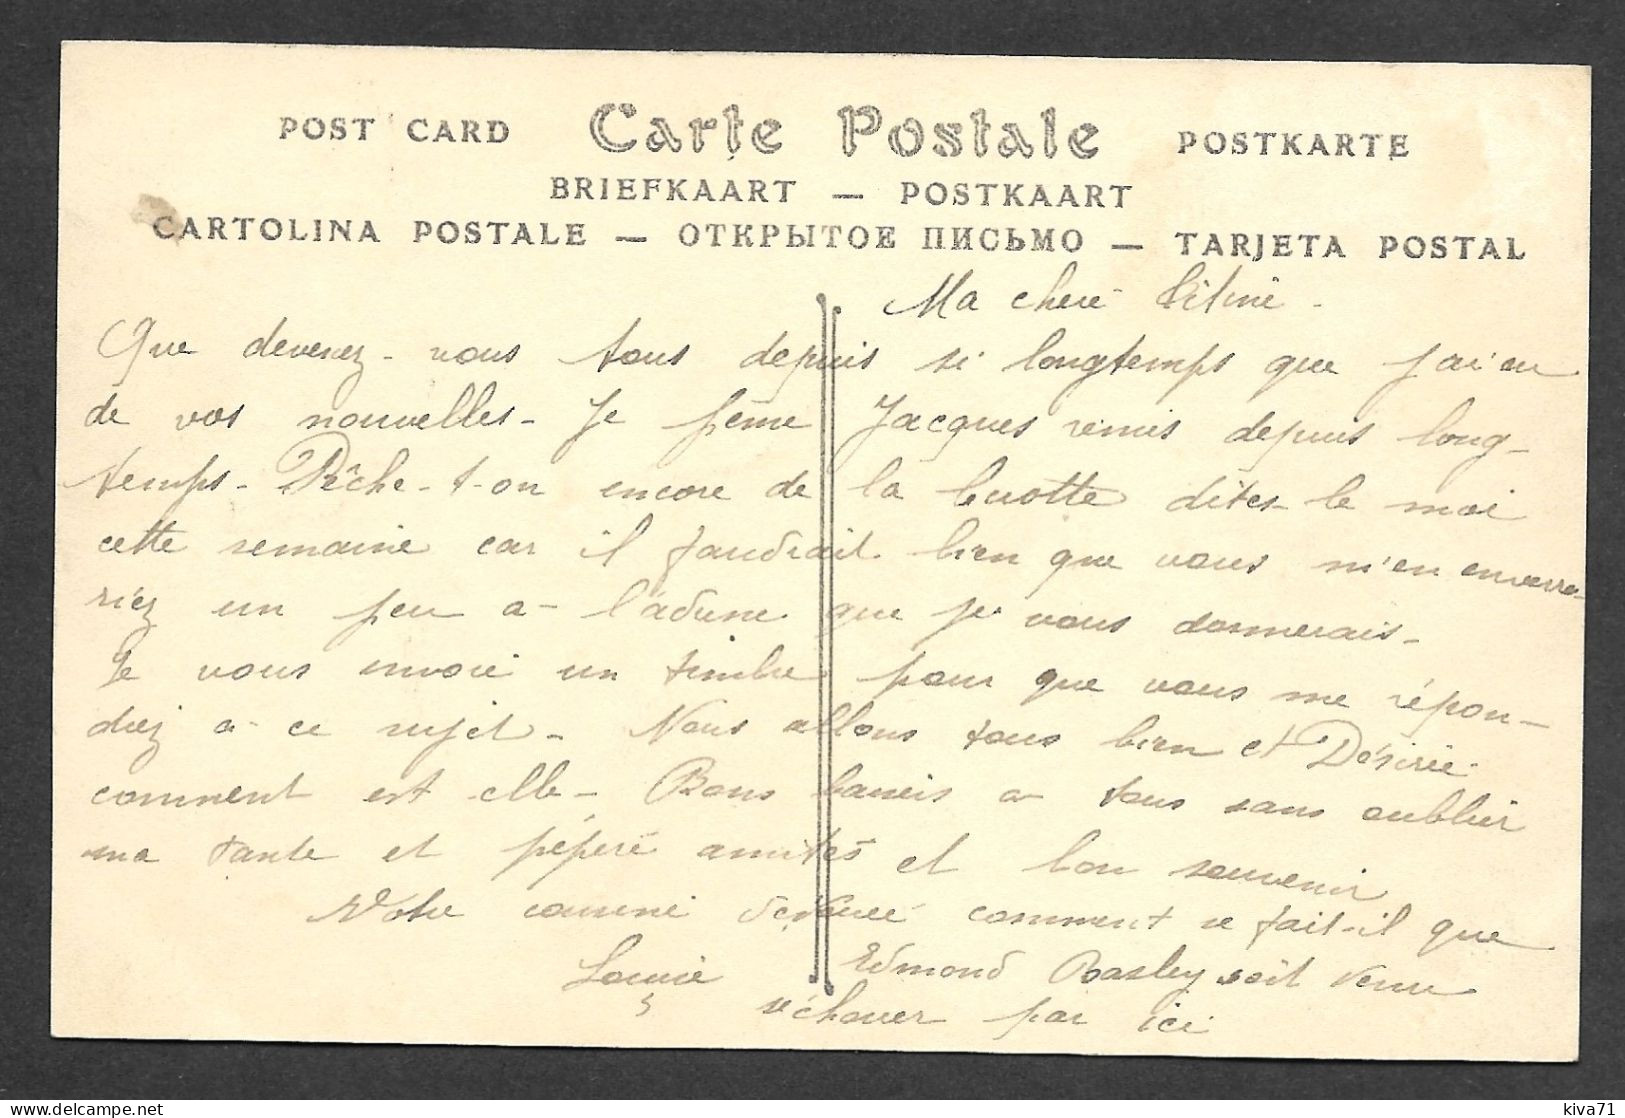 POST CARD Carte Postale POSTKARTE
BRIEFKAART — POSTKAART
CARTOLINA POSTALE — ОТКРЫТОЕ ПИСЬМО — TARJETA POSTAL
Ma chere Titine -
Que devenez-vous tous depuis si longtemps que j'ai eu
de vos nouvelles - Je Jacques remis depuis long-
temps - Pêche-t-on encore de la dites-le moi
cette semaine car il faudrait bien que vous m'en enverre-
riez un peu a que je vous donnerais -
Je vous envoie un timbre pour que vous me répon-
diez a ce sujet - Nous allons tous bien et Désirée
comment est elle - Bons baisers a tous sans oublier
ma tante et pépére amités et bon souvenir
Votre cousine comment se fait-il que
Louise Edmond Basley soit venu
échouer par ici
kiva71